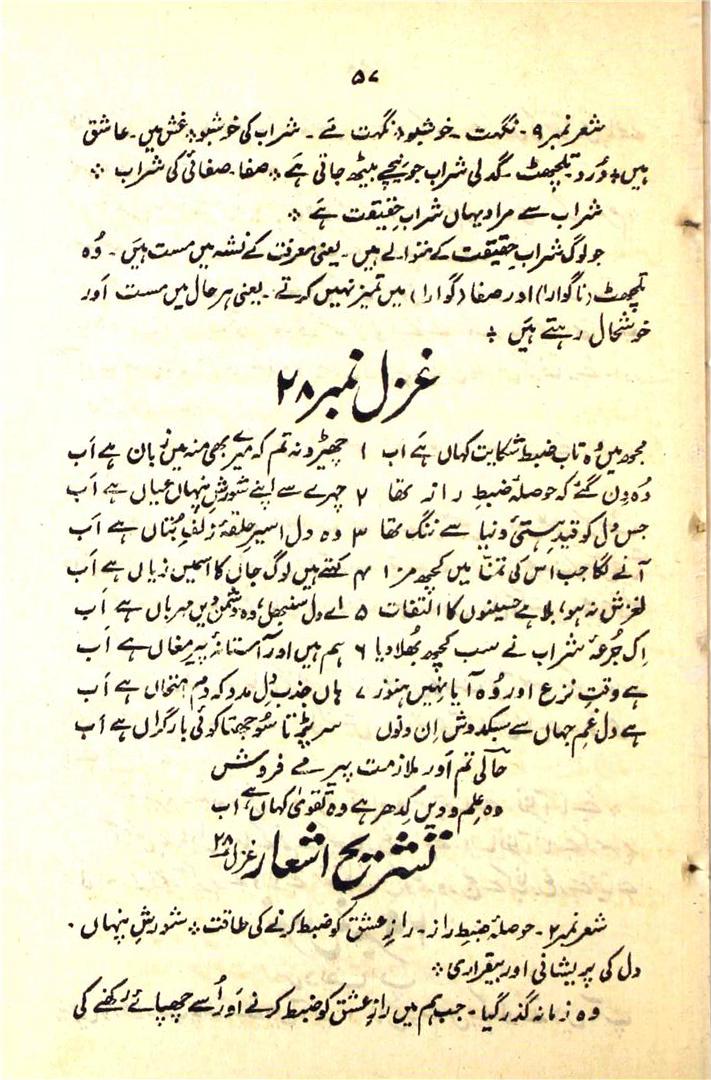 ۵۷
شعر نمبر ۹ ۔ نگہت ۔ خوشبو ؛ نگہت مے ۔ شراب کی خوشبو ؛ غش ہیں ۔ عاشق
ہیں ؛ دُرد تلچھٹ ۔ گدلی شراب جو نیچے بیٹھ جاتی ہَے ؛ صفا ۔ صفائی کی شراب ؛
شراب سے مراد یہاں شرابِ حقیقت ہَے ؛
جو لوگ شرابِ حقیقت کے متوالے ہیں ۔ یعنی معرفت کے نشہ میں مست ہیَں ۔ وُہ
تلچھٹ (ناگوارا) اور صفا (گوارا) میں تمیز نہیں کرتے ۔ یعنی ہر حال میں مست اَور
خوشحال رہتے ہیَں ؛
غزل نمبر ۲۸
مجھ میں وُہ تابِ ضبطِ شکایت کہاں ہَے اب ۱ چھیڑو نہ تم کہ میرے بھی منہ میں زبان ہے اَب
وُہ دِن گئے کہ حوصلۂ ضبطِ راز تھا ۲ چہرے سے اپنے شورشِ پنہاں عیاں ہے اَب
جس دِل کو قیدِ ہستیٔ دنیا سے ننگ تھا ۳ وہ دل اسیرِ حلقۂ زلفِ بُتاں ہے اَب
آنے لگا جب اس کی تمنّا میں کچھ مزا ۴ کہتے ہیں لوگ جاں کا اسمیں زیاں ہے اَب
لغزش نہ ہو، بلا ہے حسینوں کا التفات ۵ اے دل سنبھل، وہ دشمنِ دیں مہرباں ہے اَب
اِک جُرعۂ شراب نے سب کچھ بُھلا دیا ۶ ہم ہیں اور آستانۂ پیرِ مغاں ہے اَب
ہے وقتِ نزع اور وُہ آیا نہیں ہنوز ۷ ہاں جذبِ دِل مدد کہ دمِ امتحاں ہے اَب
ہے دل غمِ جہاں سے سبکدوش اِن دِنوں سر پڑتا سُوجھتا کوئی بارِ گراں ہے اَب
حالی تم اَور ملازمتِ پیرِ مے فروش
وہ عِلم و دیں کِدھر ہے وہ تقویٰ کہاں ہے اب
تشریح اشعار غزل ۲۸
شعر نمبر ۲ ۔ حوصلۂ ضبطِ راز ۔ رازِ عشق کو ضبط کرنے کی طاقت ؛ شورشِ پنہاں ۔
دل کی پریشانی اور بیقراری ؛
وہ زمانہ گذر گیا ۔ جب ہم میں رازِ عشق کو ضبط کرنے اَور اُسے چھپائے رکھنے کی